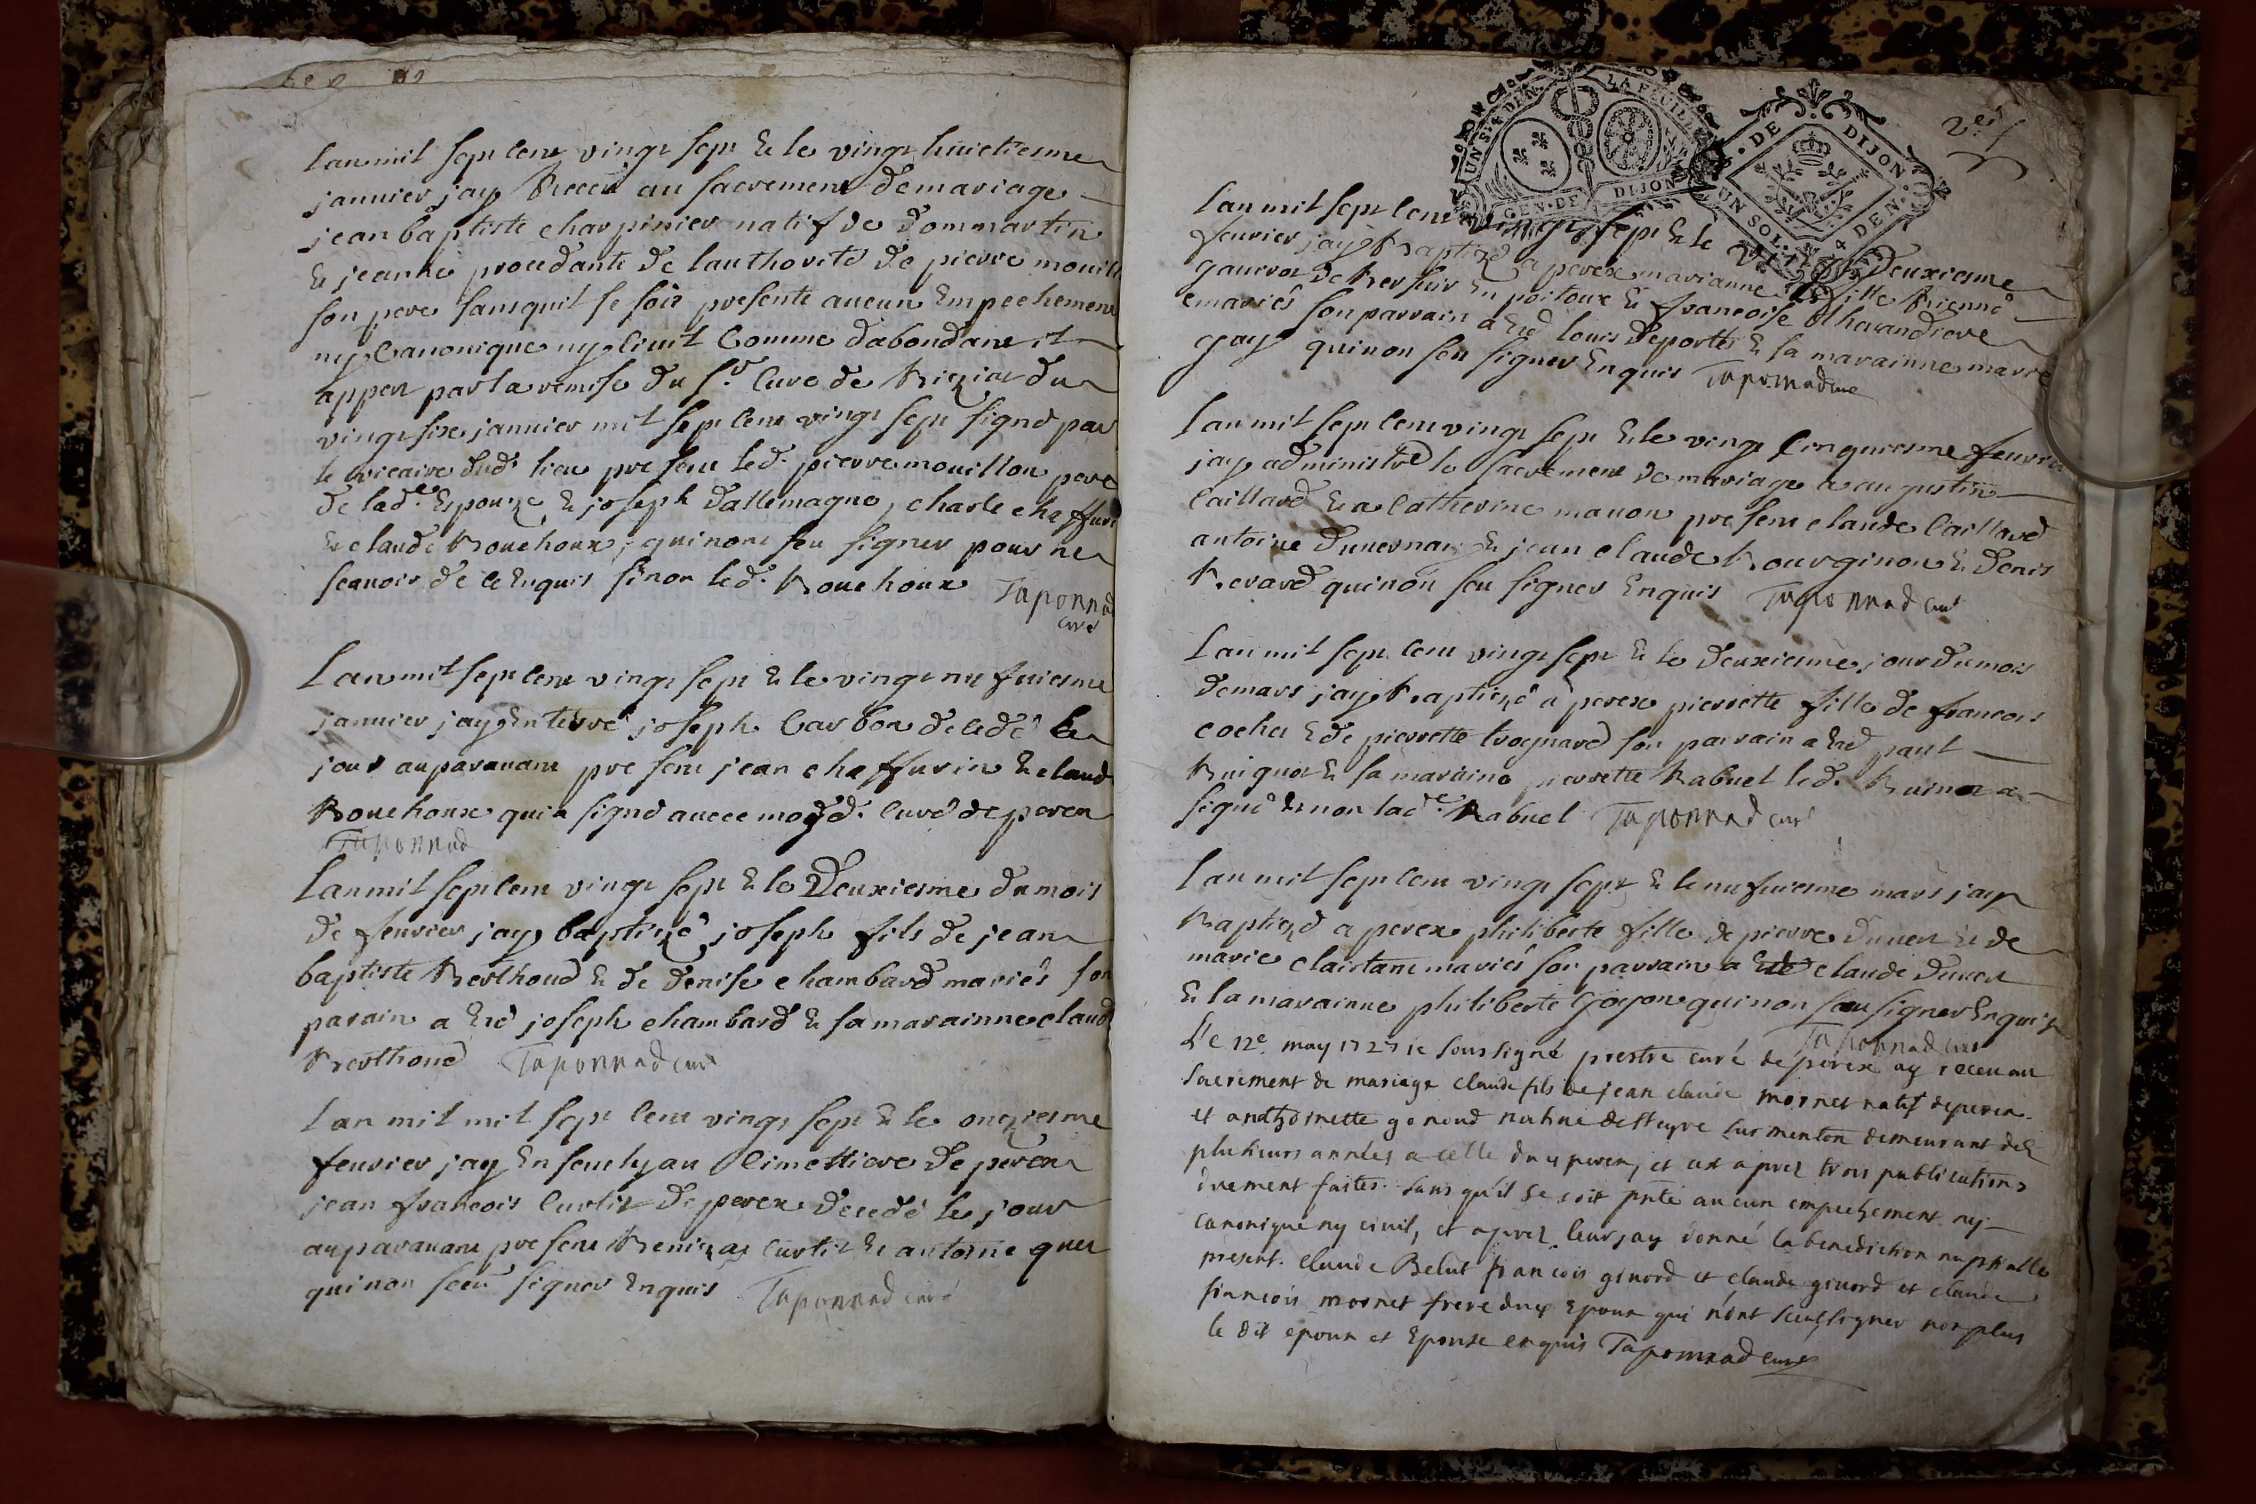 lan mil sept cent vingt sept & le vingt huictiesme
januier jay Receu au sacrement de mariage
jean baptiste charpinier natif de dommartin
& jeanne procedante de lauthorité de pierre mouill
son pere sans quil se soit presenté aucun Empechement
ny Canonique ny Ciuil Comme dabondant it
appert par la remise du Sr. Curé de du
vingt six januier mil sept cent vingt sept signé par
le vicaire dud. lieu present led. pierre mouillon pere
de lad.e Espouze, & joseph dallemagne, charle cheffur
& claude Bouchoux, qui nont seu signer pour ne
scauoir de ce Enquis sinon led. Bouchoux Taponnad
curé
Lan mil sept cent vingt sept & le vingt nufuiesme
januier jay Enterré joseph Carbon decedé le
jour auparauant present jean cheffurin & claud
Bouchoux qui a signé auec moy d. Curé de perex
Taponnad
Lan mil sept cent vingt sept & le Deuxiesme du mois
de feurier jay baptizé joseph fils de jean
baptiste Berthoud & de denise chambard mariés son
parain a Eté joseph chambard & sa marainne claud
Berthoud Taponnad curé
lan mil mil sept cent vingt sept & le onziesme
feurier jay Ensevely au Cimettiere de perex
jean francois Curtil de perex decedé le jour
auparauant present Curtil & antoine
qui non sceu signer Enquis Taponnad curé
UN S. 4 DEN. LA FEUILLE
GEN. DE DIJON
DE DIJON
UN SOL. 4 DEN.
lan mil sept cent vingt sept & le vingt Deuxiesme
feurier jay Baptizé a perex marianne fille
de en poitoux & francoise
& mariés son parrain a Eté louis deportes & sa marainne marie
gay qui non seu signer Enquis Taponnad curé
lan mil sept cent vingt sept & le vingt Cinquiesme feurier
jay administré le sacrement de mariage a augustin
Caillard & a Catherine manon present claude Caillard
antoine duuernay & jean claude Bourginon & denis
Berard qui non seu signer Enquis Taponnad curé
lan mil sept cent vingt sept & le deuxiesme jour du mois
de mars jay Baptizé a perex pierrette fille de francois
cochet & de pierrette son parrain a Eté paul
& sa maraine pierrette Rabuel led. a
signé & non lad.e Rabuel Taponnad curé
lan mil sept cent vingt sept & le nufuiesme mars jay
Baptizé a perex philiberte fille de pierre & de
marie mariés son parrain a Eté claude
& la marainne philiberte Goyon qui non seu signer Enquis
Taponnad curé
Le 12e. may 1727 je soussigné prestre curé de perex ay receu au
sacrement de mariage claude fils de jean claude mornet natif de perex
et anthoinette gonod natiue de St cyre sur menton demeurant
plusieurs années a celle du perex, et cet apres trois publications
duement faites. sans qu'il se soit pnté aucun empechement ny
canonique ny ciuil, et aprez leur jay donné la benediction nuptialle
present. claude Belut francois et claude et claude
francois mornet frere epoux qui n'ont sceu signer non plus
le dit epoux et Epouse enquis Taponnad curé